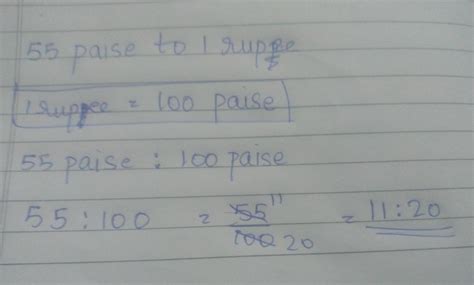 55 paise to 1 rupee
1 rupee = 100 paise
55 paise : 100 paise
55 : 100 = 55 11 / 100 20 = 11 : 20